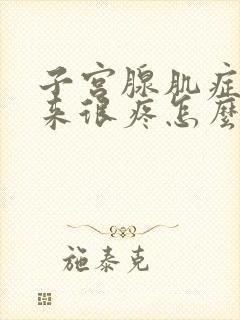 子宫腺肌症
来很疼怎麼
施泰克